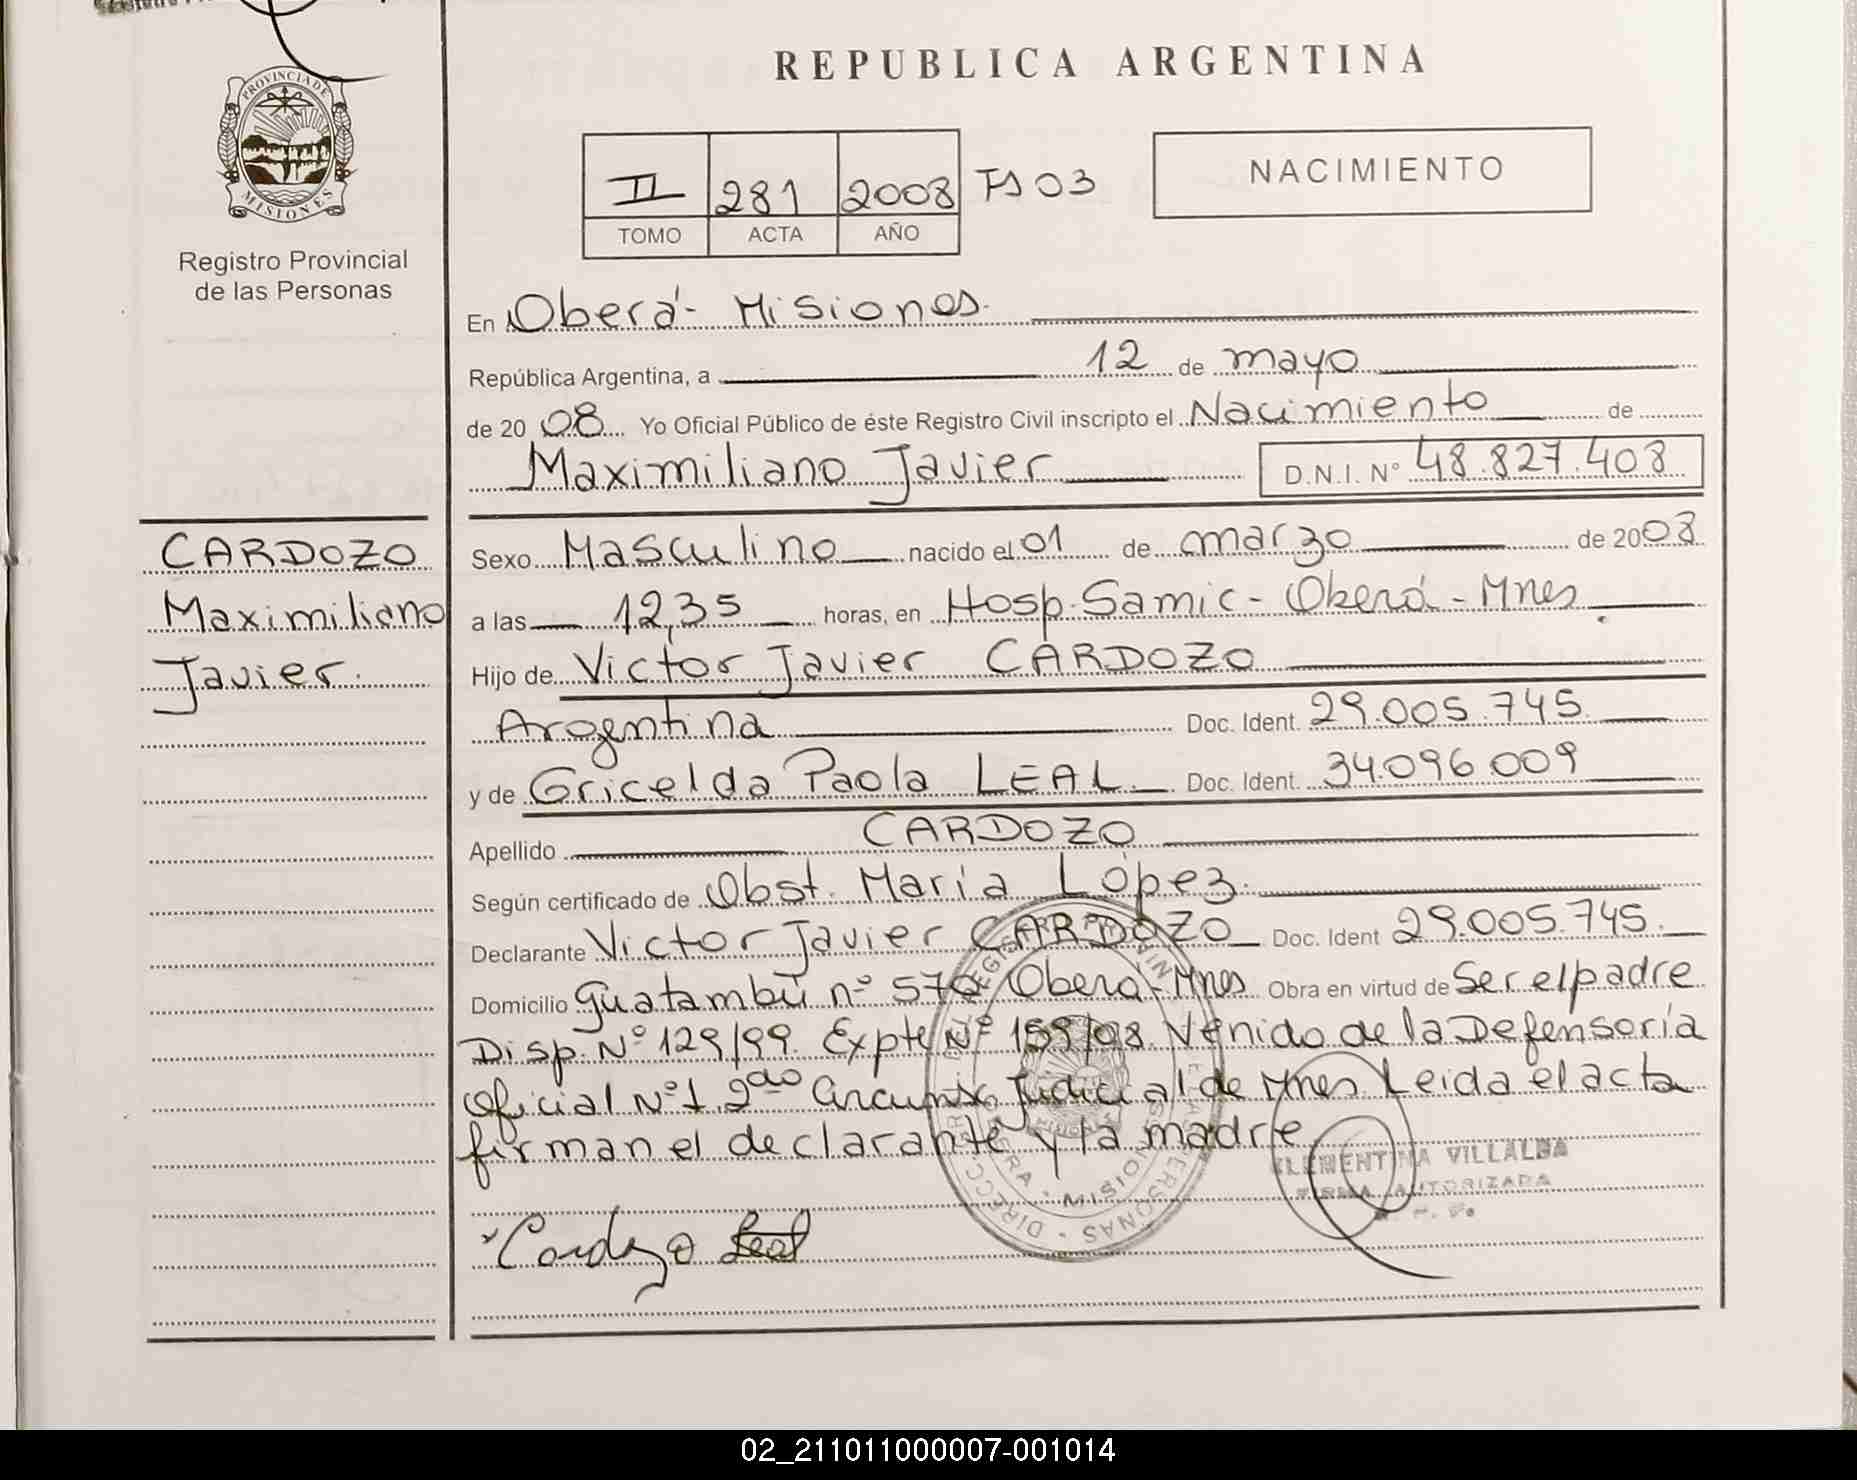 REPUBLICA ARGENTINA
PROVINCIA DE
MISIONES
Registro Provincial
de las Personas
II 281 2008 Fs 03
TOMO ACTA AÑO
NACIMIENTO
En Oberá - Misiones.
República Argentina, a 12 de mayo
de 2008 Yo Oficial Público de éste Registro Civil inscripto el Nacimiento de
Maximiliano Javier D.N.I. Nº 48.827.408
CARDOZO
Maximiliano
Javier.
Sexo Masculino nacido el 01 de marzo de 2008
a las 12,35 horas, en Hosp. Samic - Oberá - Mnes.
Hijo de Victor Javier CARDOZO
Argentina Doc. Ident. 29.005.745
y de Gricelda Paola LEAL Doc. Ident. 34.096.009
Apellido CARDOZO
Según certificado de Obst. María López.
Declarante Victor Javier CARDOZO Doc. Ident 29.005.745.
Domicilio Guatambú nº 570 Oberá - Mnes Obra en virtud de Ser el padre
Disp. Nº 129/99. Expte Nº 159/08. Venido de la Defensoría
Oficial Nº 1 2da Circunsc. Judicial de Mnes Leida el acta
firman el declarante y la madre
CLEMENTINA VILLALBA
FIRMA AUTORIZADA
Cardozo Leal
02_211011000007-001014